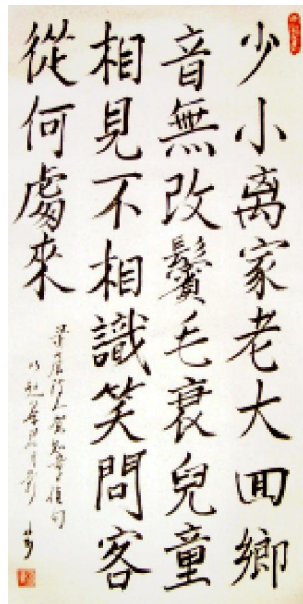 少小离家老大回鄉
音無改鬢毛衰兒童
相見不相識笑問客
從何處來